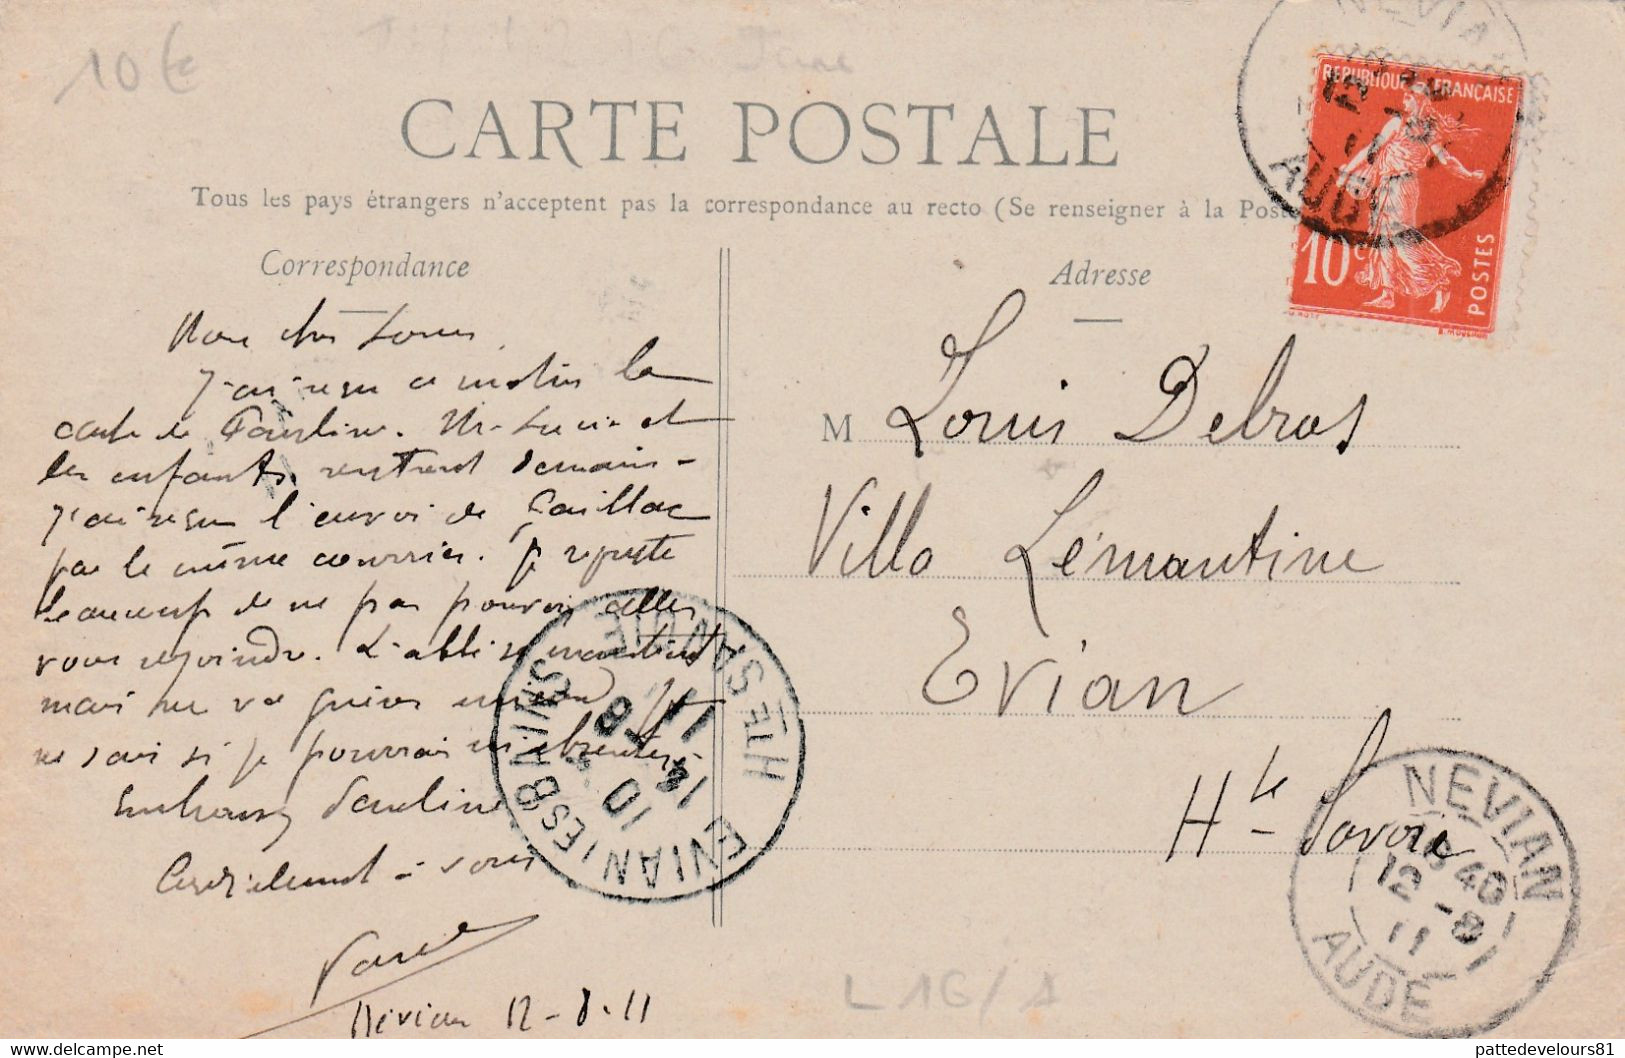 10 €
CARTE POSTALE
Tous les pays étrangers n'acceptent pas la correspondance au recto (Se renseigner à la Poste
Correspondance
Adresse
NEVIAN
12 -8
11
AUDE
REPUBLIQUE FRANÇAISE
10c
POSTES
Mon cher Louis
J'ai reçu ce matin la
carte de Pauline. et
les enfants rentrent demain -
J'ai reçu l'envoi de Gaillac
par le même courrier. Je regrette
beaucoup de ne pas pouvoir aller
vous rejoindre. L'abbé se maintient
mais ne va guère mieux Je
ne sais si je pourrai m'absenter.
Embrassez Pauline
Cordialement à vous
Névian 12-8-11
M Louis Debros
Villa Lémantine
Evian
Hte Savoie
EVIAN LES BAINS
HTE SAVOIE
NEVIAN
12 -8
11
AUDE
L 16/1
delcampe.net
pattedevelours81